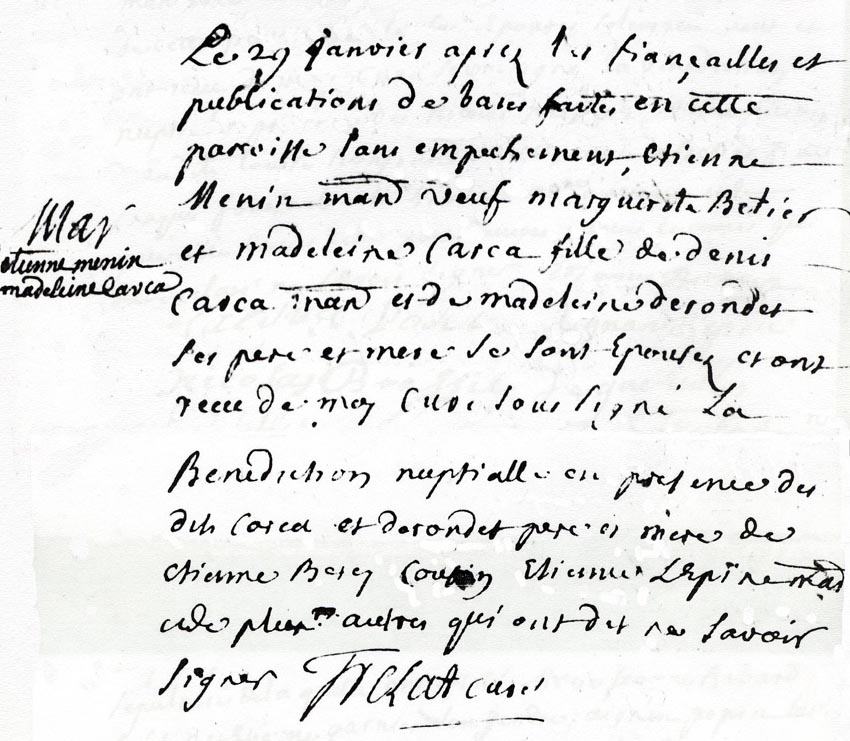 Le 29 janvier aprez les fiançailles et
publications de bans faites en cette
paroisse sans empechement, Etienne
Menin man veuf marguerite Betier
et madeleine Carca fille de denis
Carca man et de madeleine derondet
ses pere et mere se sont Epousez et ont
receu de moy Curé sous signé La
Benediction nuptialle en presence des
dits Carca et derondet pere et mere de
etienne Berey Cousin Etienne Lepine man
et de plusrs autres qui ont dit ne savoir
signer curé
May
etienne menin
madeleine Carca